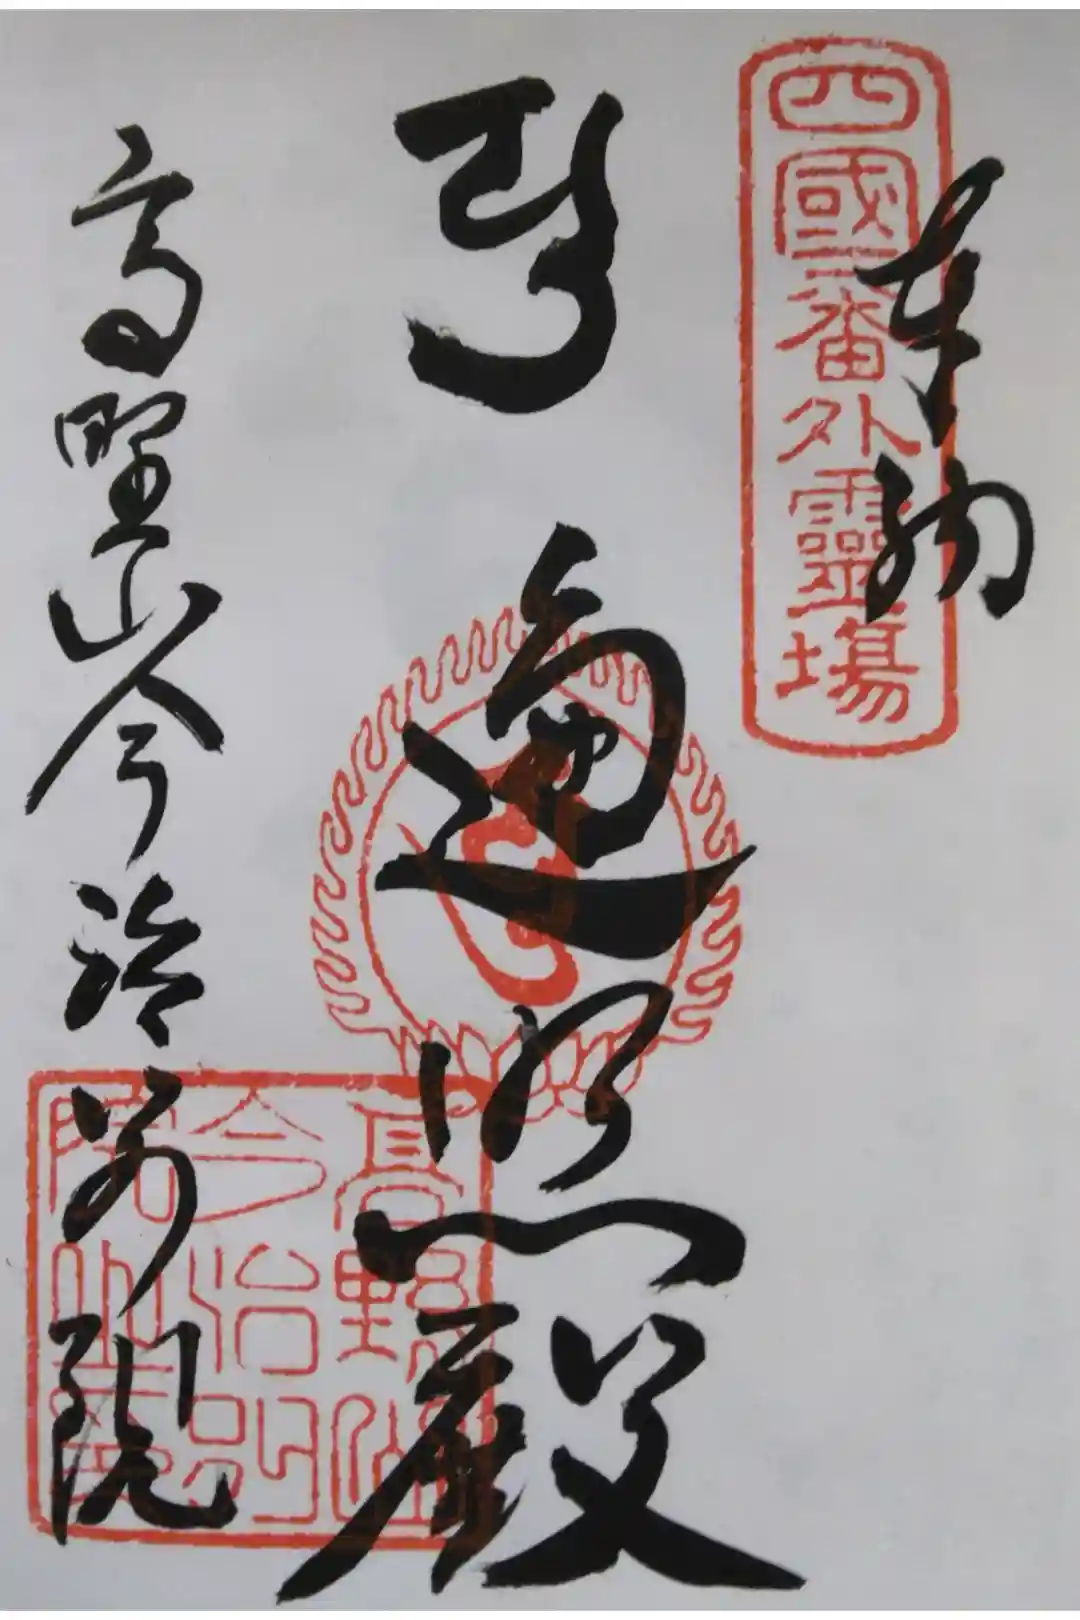 四國番外靈場
奉納
遍照殿
高野山今治別院
高野山
今治別
院之